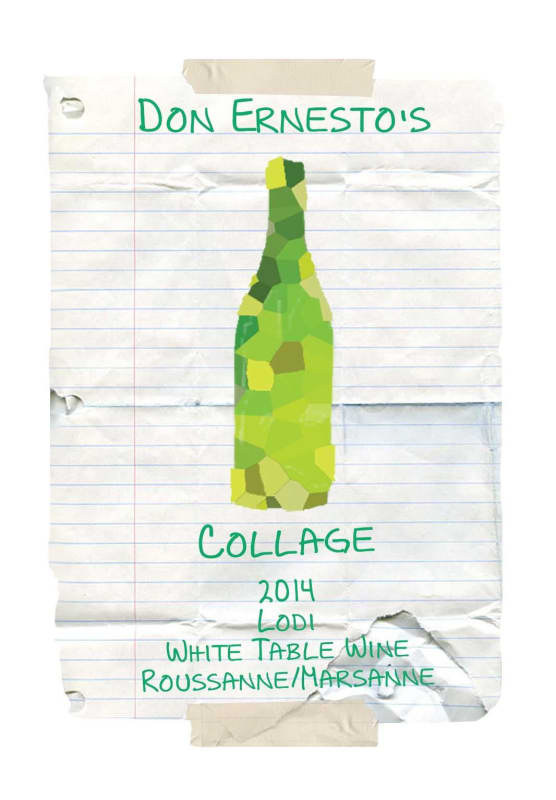 Don Ernesto's
Collage
2014
Lodi
White Table Wine
Roussanne/Marsanne